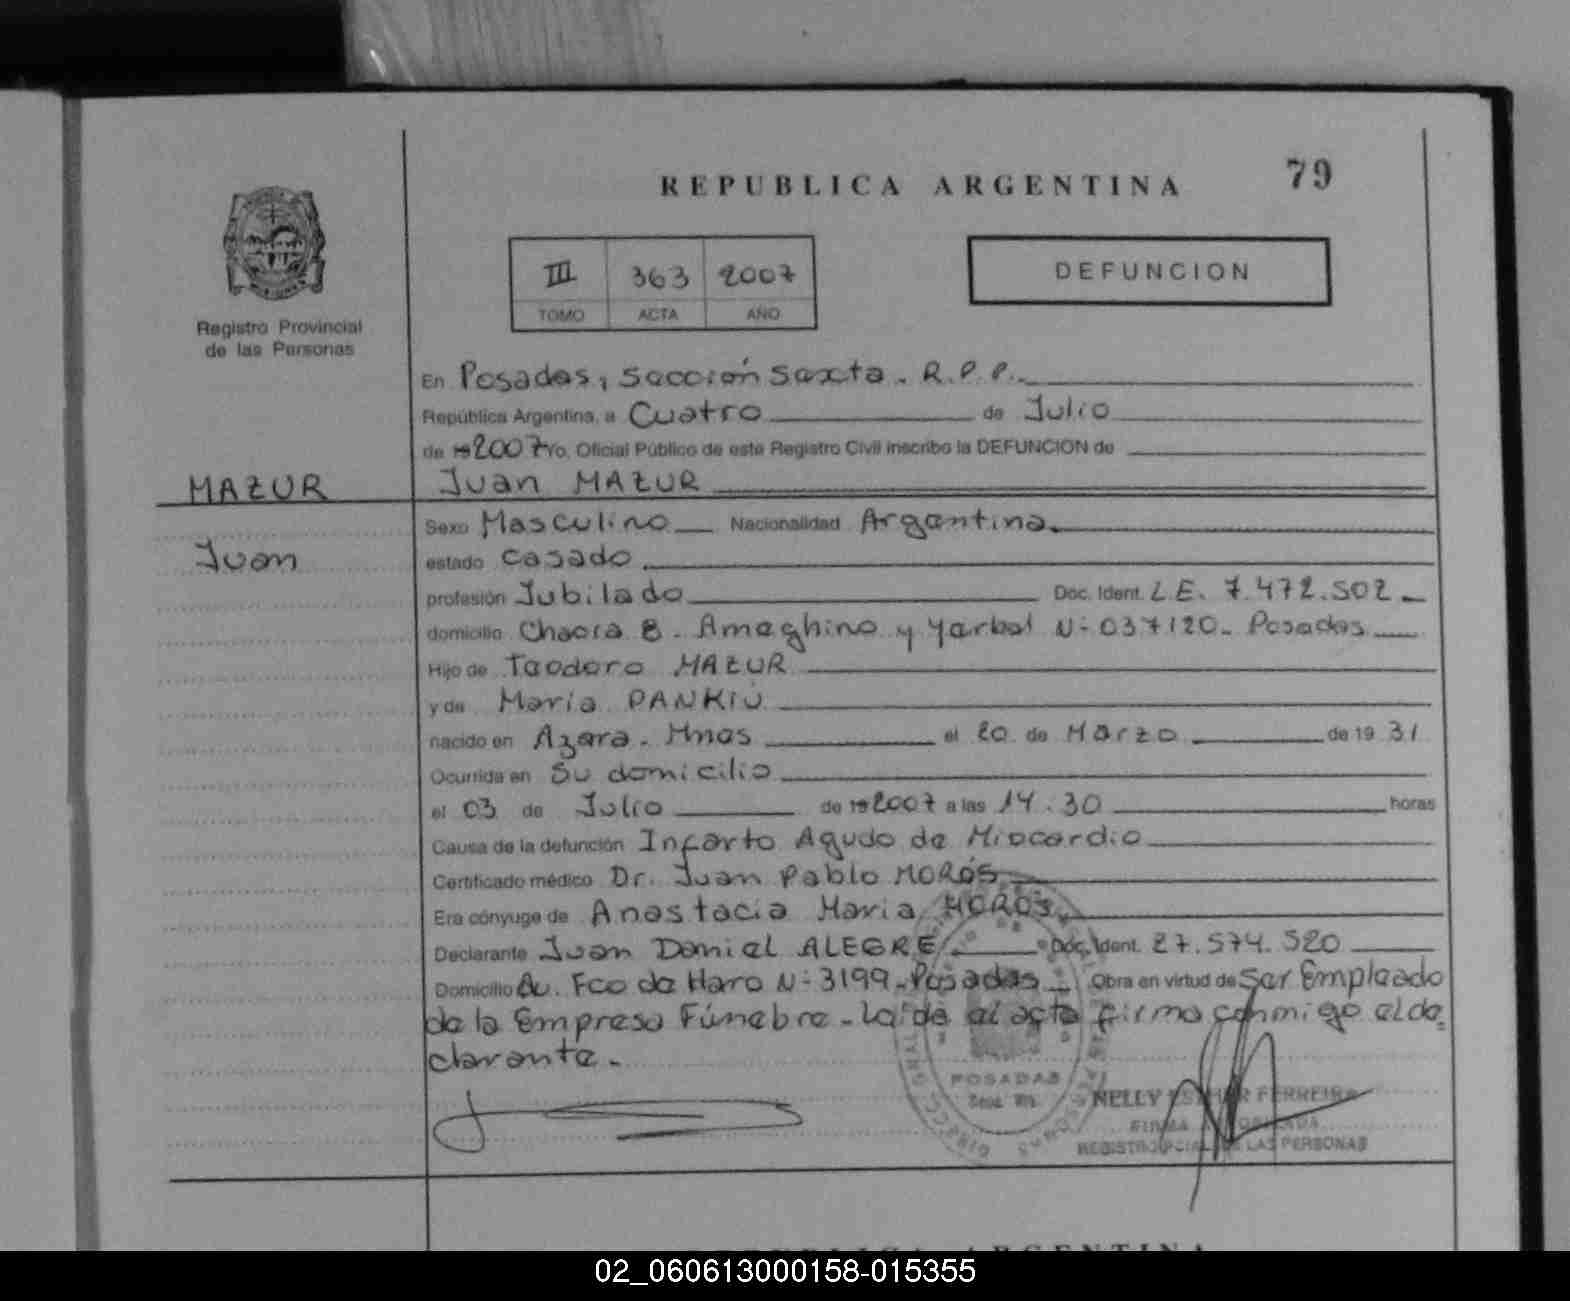 REPUBLICA ARGENTINA
79
III 363 2007
TOMO ACTA AÑO
DEFUNCION
Registro Provincial
de las Personas
En Posadas, Sección Sexta. R.P.P.
República Argentina, a Cuatro de Julio
de 192007 Yo, Oficial Público de este Registro Civil inscribo la DEFUNCION de
MAZUR
Juan MAZUR
Juan
Sexo Masculino Nacionalidad Argentina.
estado casado
profesión Jubilado Doc. Ident. L.E. 7.472.502
domicilio Chacra 8. Ameghino y Yerbal N- 037120. Posadas
Hijo de Teodoro MAZUR
y de María PANKIU
nacido en Azara. Mnes el 20 de Marzo de 19 31
Ocurrida en Su domicilio
el 03 de Julio de 192007 a las 14:30 horas
Causa de la defunción Infarto Agudo de Miocardio
Certificado médico Dr. Juan Pablo MORÓS
Era cónyuge de Anastacia Maria MOROS
Declarante Juan Daniel ALEGRE Doc. Ident. 27.574.520
Domicilio Av. Fco de Haro N- 3199. Posadas Obra en virtud de Ser Empleado
de la Empresa Fúnebre. Leída el acta firma conmigo el de-
clarante.
POSADAS
NELLY ESTHER FERREIRA
FIRMA
REGISTRO PCIAL DE LAS PERSONAS
REPUBLICA ARGENTINA
02_060613000158-015355